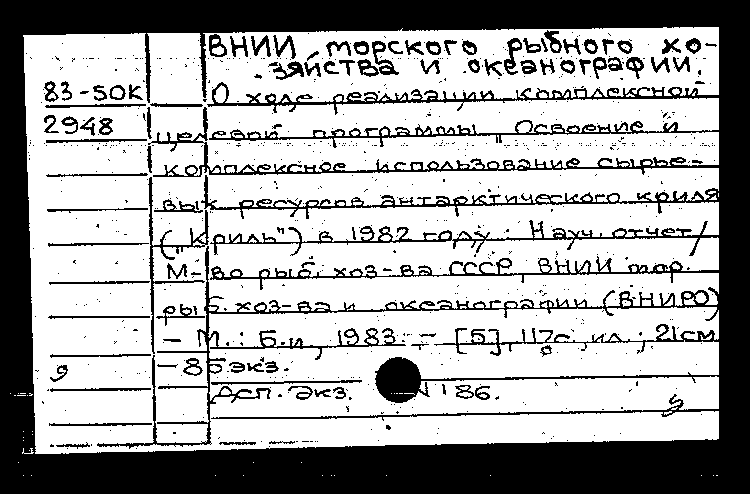 ВНИИ морского рыбного хо-
зяйства и океанографии.
83-50К О ходе реализации комплексной
2948 целевой программы „Освоение и
комплексное использование сырье-
вых ресурсов антарктического криля
(„Криль") в 1982 году: Науч. отчет/
М-во рыб. хоз-ва СССР, ВНИИ мор.
рыб. хоз-ва и океанографии (ВНИРО)
- М.: Б.и., 1983. - [5], 117с. ил.; 21см
9 - 85экз.
Дсп. Экз. N 86.